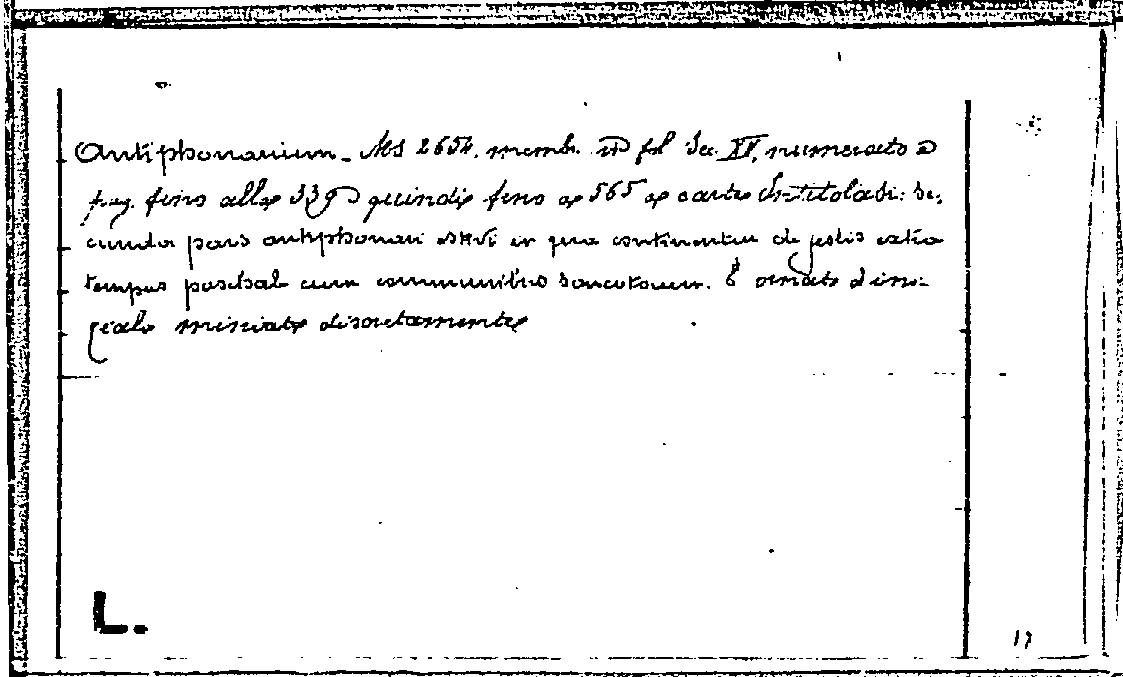 Antiphonarium - Ms 2654. memb. in fol Sec. XV, numerato a
pag. fino alle 339 quindi fino a 565 a carte Intitolasi: Se,
cunda pars antiphonari estivi in qua continentur de festis extra
tempus paschale cum communibus sanctorum. È ornato d'ini-
ziale miniate discretamente
L.
17